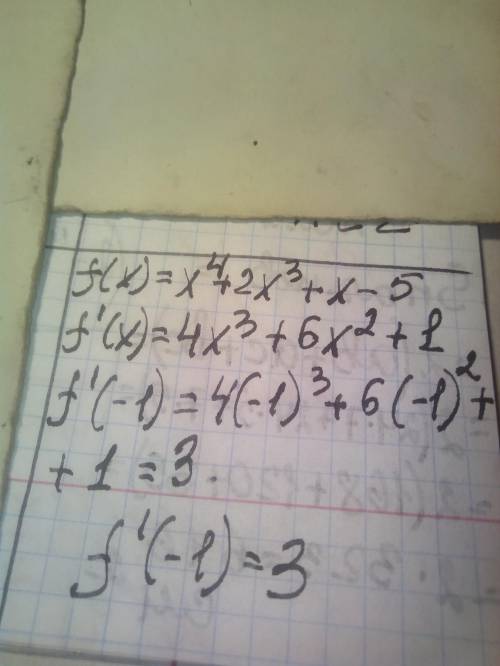 f(x)=x⁴+2x³+x-5
f'(x)=4x³+6x²+1
f'(-1)=4(-1)³+6(-1)²+
+1=3.
f'(-1)=3